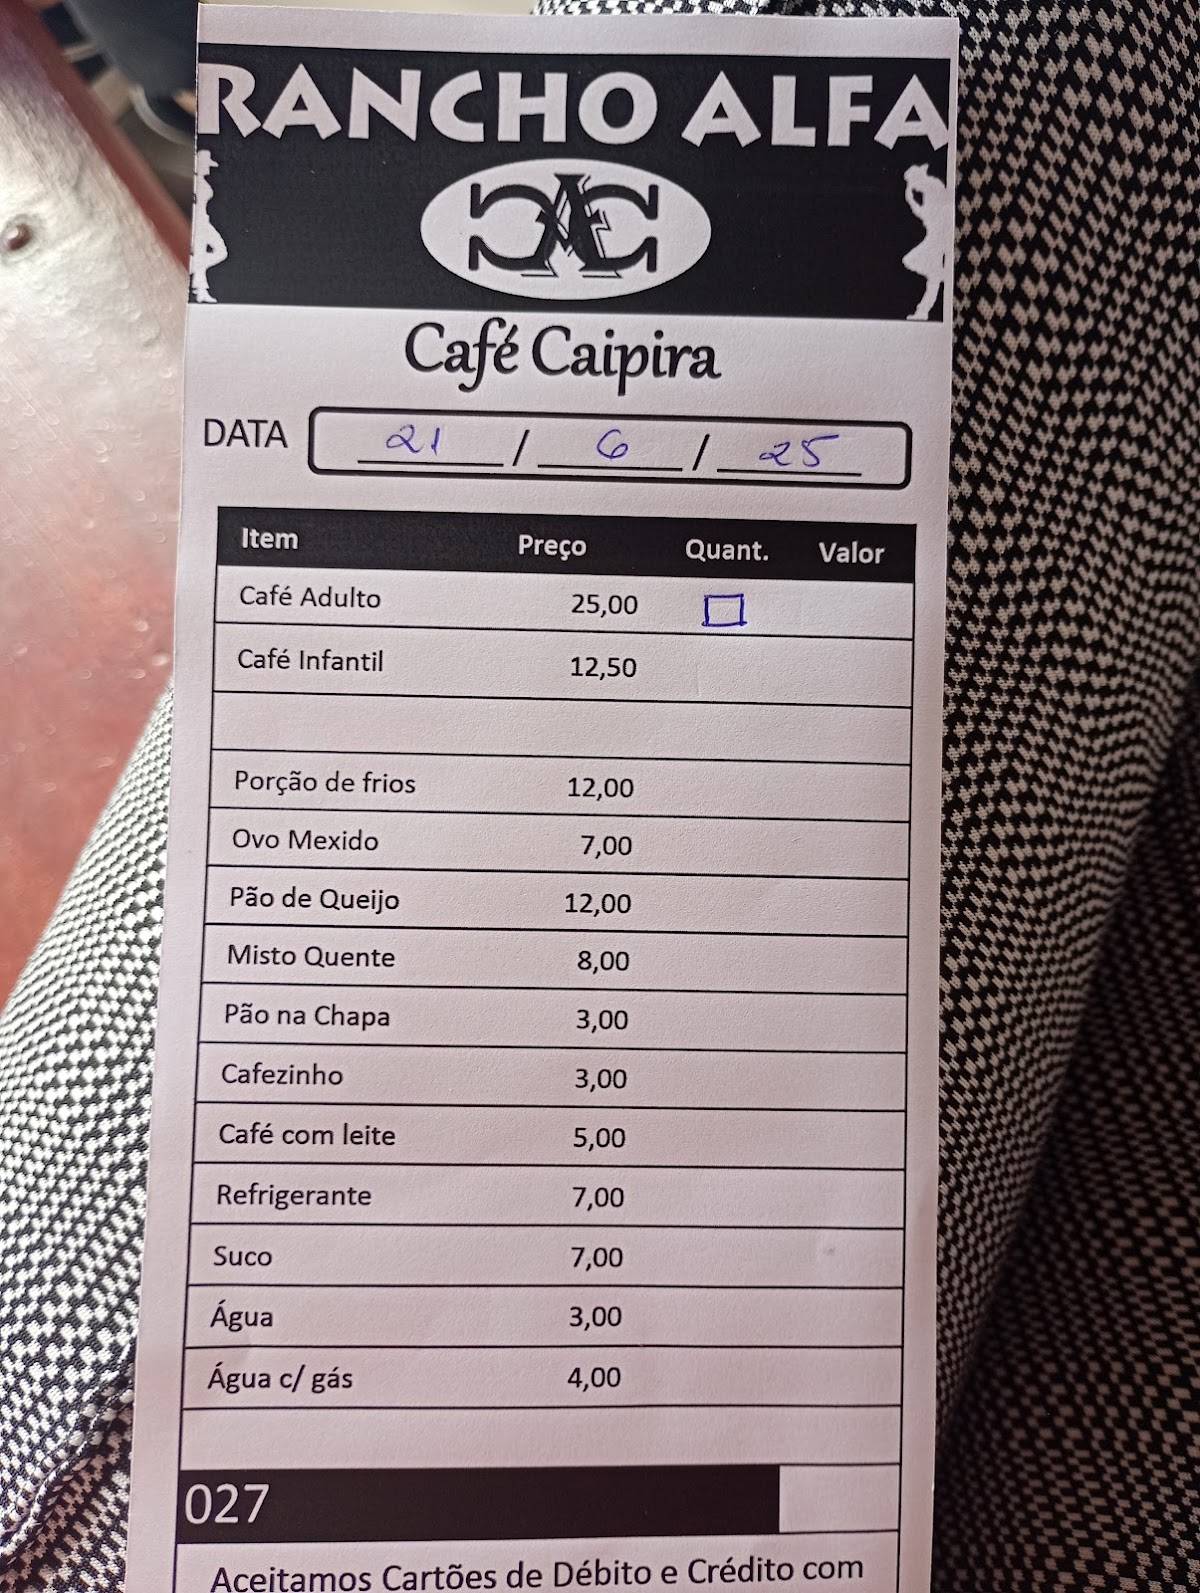 RANCHO ALFA
Café Caipira
DATA 21 / 6 / 25
Item Preço Quant. Valor
Café Adulto 25,00
Café Infantil 12,50
Porção de frios 12,00
Ovo Mexido 7,00
Pão de Queijo 12,00
Misto Quente 8,00
Pão na Chapa 3,00
Cafezinho 3,00
Café com leite 5,00
Refrigerante 7,00
Suco 7,00
Água 3,00
Água c/ gás 4,00
027
Aceitamos Cartões de Débito e Crédito com